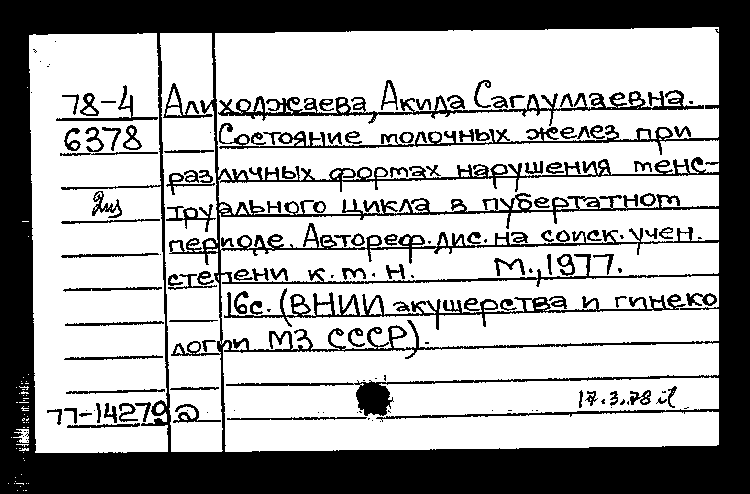 78-4 Алиходжаева, Акида Сагдуллаевна.
6378 Состояние молочных желез при
различных формах нарушения менс-
труального цикла в пубертатном
периоде. Автореф. дис. на соиск. учен.
степени к.м.н. М., 1977.
16с. (ВНИИ акушерства и гинеко
логии МЗ СССР).
77-14279
17.3.78